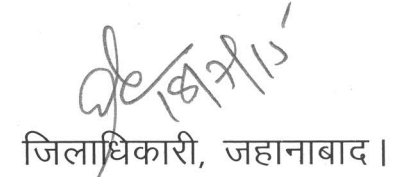 जिलाधिकारी, जहानाबाद।